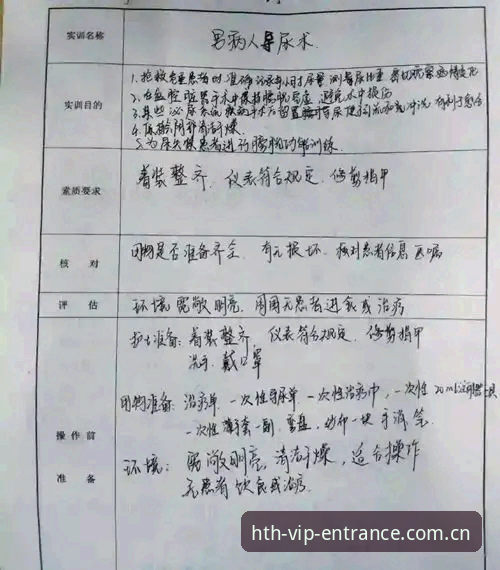 实训名称
男病人导尿术.
实训目的
1.抢救危重患者时准确记录每小时尿量 测量尿比重 密切观察病情变化
2.在盆腔脏器手术中保持膀胱 避免术中损伤
3.某些泌尿系统疾病手术后留置 导尿 便于引流和冲洗
4.保持 清洁干燥.
5.为尿失禁患者进行膀胱功能训练.
素质要求
着装整齐. 仪表符合规定. 修剪指甲
核 对
用物是否准备齐全. 有无损坏. 核对患者信息 医嘱
评 估
环境宽敞明亮. 周围无患者进食或治疗
操作前
准 备
护士准备: 着装整齐. 仪表符合规定. 修剪指甲
洗手. 戴口罩
用物准备: 治疗单. 一次性导尿单. 一次性治疗巾, 一次性20ml
一次性 手套一副. 弯盘, 一块 手消 笔.
环境: 宽敞明亮, 清洁干燥, 适合操作
无患者饮食或治疗.
hth-vip-entrance.com.cn